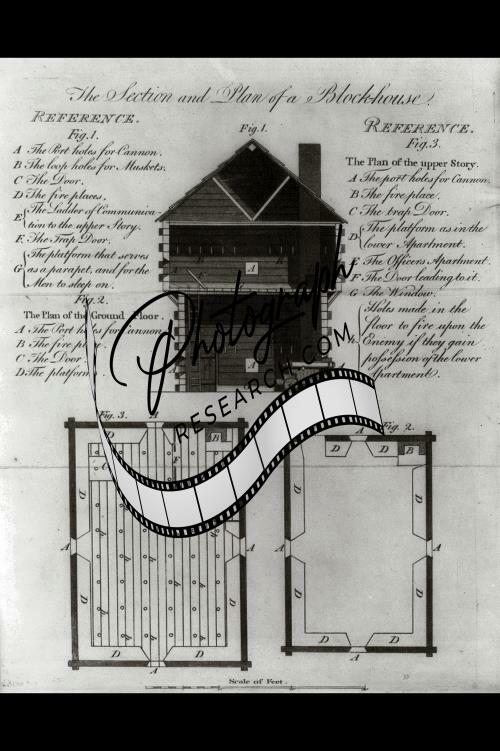 The Section and Plan of a Blockhouse.
REFERENCE.
Fig.1.
A The Port holes for Cannon.
B The loop holes for Muskets.
C The Door.
D The fire places.
E The Ladder of Communica-
tion to the upper Story.
F. The Trap Door.
G The platform that serves
as a parapet, and for the
Men to sleep on.
Fig.2.
The Plan of the Ground Floor.
A The Port holes for Cannon
B The fire place
C The Door
D. The platform
Fig.1.
A
A
REFERENCE.
Fig.3.
The Plan of the upper Story.
A The port holes for Cannon
B The fire place.
C The trap Door.
D The platform as in the
lower Apartment.
The Officers Apartment.
F The Door leading to it.
G The Window.
Holes made in the
floor to fire upon the
Enemy if they gain
possession of the lower
Apartment.
Photograph
RESEARCH.COM
Fig. 3.
A
D
B
C
F
D
D
A
A
D
D
D
D
A
Fig. 2.
A
D
D
B
D
D
A
A
D
D
D
D
A
Scale of Feet.